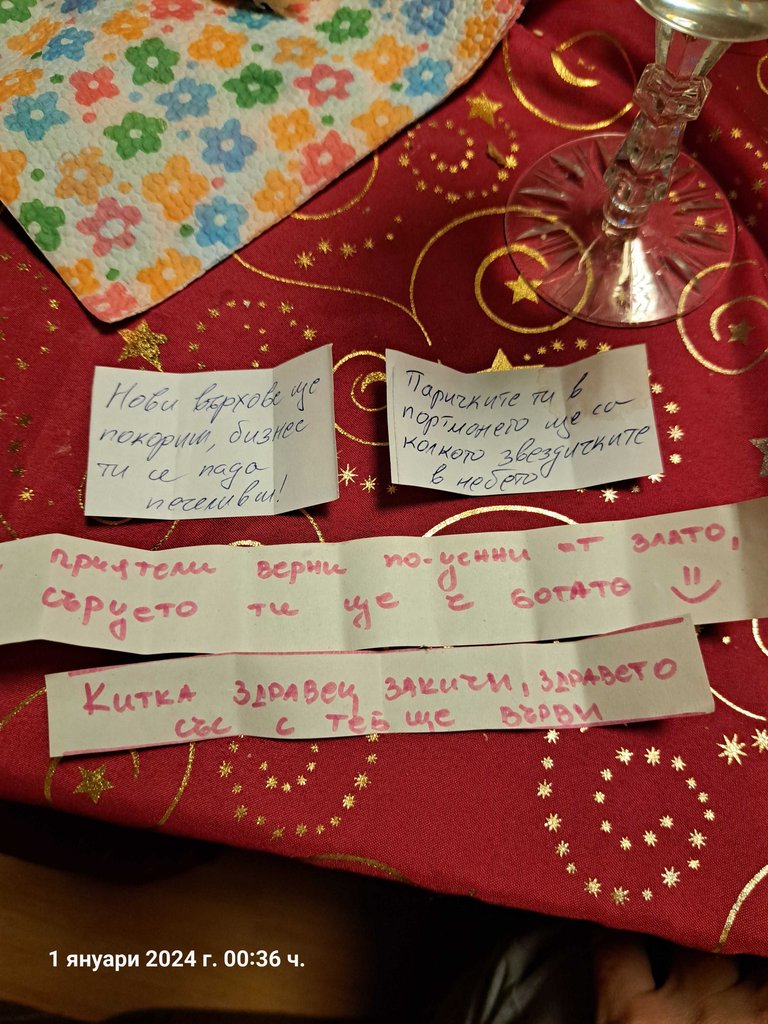 Нови върхове ще
покориш, бизнес
ти се пада
печеливш!
Паричките ти в
портмонето ще са
колкото звездичките
в небето
приятели верни по-ценни от злато,
сърцето ти ще е богато
Китка здравец закичи, здравето
със с теб ще върви
1 януари 2024 г. 00:36 ч.